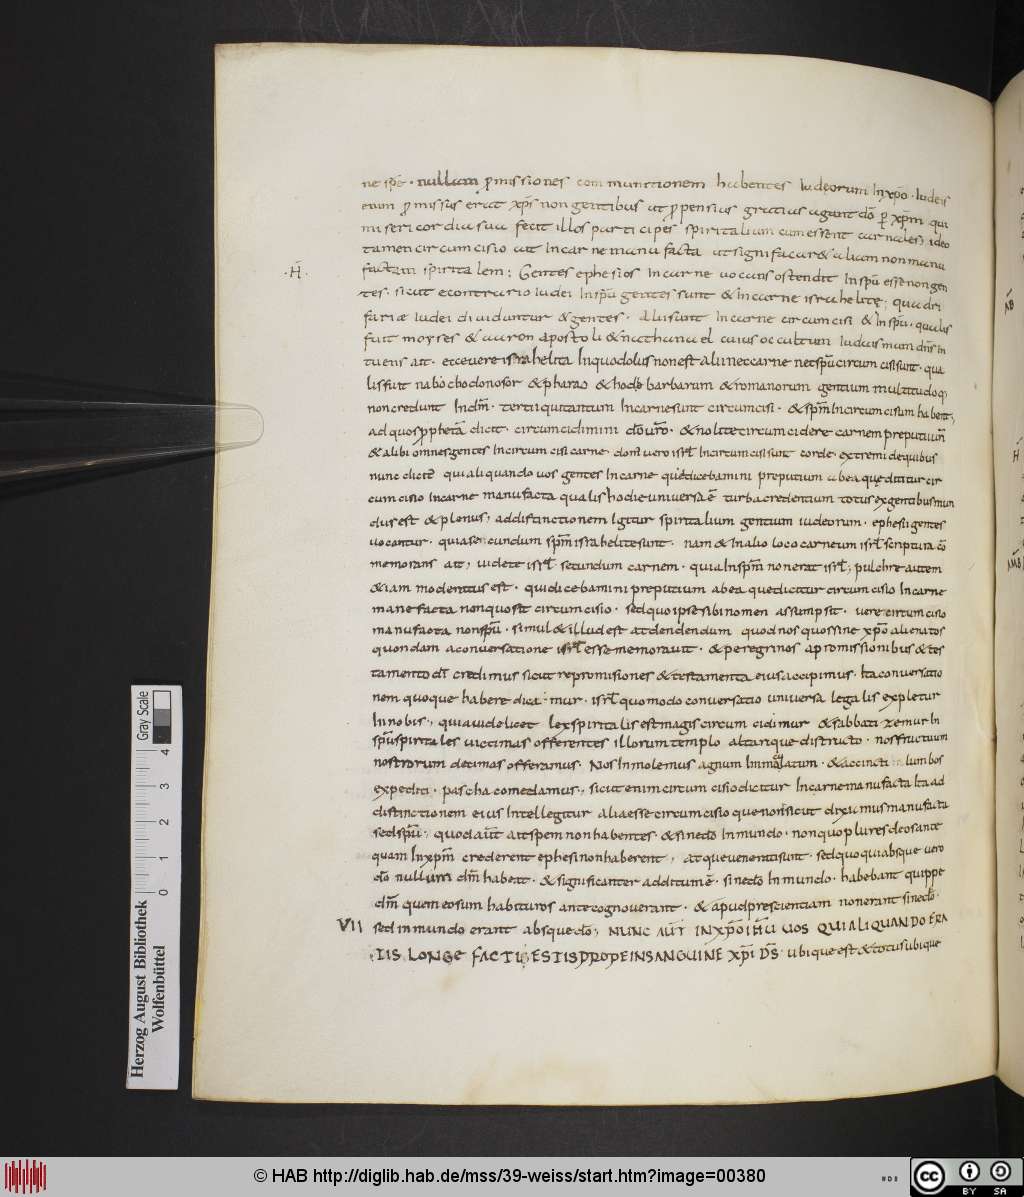 ne spē · nullam ꝓmissiones communctionem habentes Iudeorum In xp̄o · Iudeis
enim ꝓmissus erat xp̄s non gentibus ut ꝓpensius gratias agant dō ꝑ xp̄m qui
misericordia sua fecit illos participes spiritalium cum essent carnales, ideo
tamen circumcisio ait In carne manu facta ut significar& aliam non manu
·H̄· factam spiritalem; Gentes ephesios In carne uocans ostendit In sp̄u esse non gen
tes · sicut e contrario Iudei In sp̄u gentes sunt & In carne israhelitę; quadri
fariæ Iudei diuiduntur & gentes · Alii sunt In carne circumcisi & In sp̄u · qualis
fuit moyses & aaron apostoli & nathanael cuius occultum Iudaismum dn̄s In
tuens ait · ecce uere israhelita In quo dolus non est alii nec carne nec sp̄u circumcisi sunt · qua
lis fuit nabochodonosor & pharao & hodie barbarum & romanorum gentium multitudo q;
non credunt In dm̄ · tertii qui tantum In carne sunt circumcisi · & sp̄m Incircumcisum habent;
ad quos ꝓphetā dicit · circumcidimini dō uro · & nolite circumcidere carnem preputii ur̄i
& alibi omnes gentes Incircumcisi carne · dom' uero isrl̄ Incircumcisi sunt corde · extremi de quibus
nunc dictē qui aliquando uos gentes In carne qui dicebamini preputium ab ea quę dicitur cir
cumcisio In carne manufacta qualis hodie uniuersa ē turba credentium totus ex gentibus mun
dus est & plenus; ad distinctionem Igitur spiritalium gentium iudeorum · ephesii gentes
uocantur · quia secundum sp̄m israhelite sunt · nam & In alio loco carneum isrl̄ scriptura cō
memorans ait; uidete isrl̄ secundum carnem · quia In sp̄m non erat isrl̄; pulchre autem
& iam modentius est · qui dicebamini preputium ab ea que dicitur circumcisio In carne
manefacta non quo sit circumcisio · sed quo ipse sibi nomen assumpsit · uere circumcisio
manufacta non sp̄u · simul & illud est attendendum quod nos quos sine xp̄o alienatos
quondam a conuersatione isrl̄ esse memorauit · & peregrinos a promissionibus & tes
tamento dī credimus sicut repromisiones & testamenta eius accipimus · Ita conuersatio
nem quoque habere dicamur · isrl̄ quomodo conuersatio uniuersa legalis expletur
In nobis, quia uidelicet lex spiritalis est magis circumcidimur & sabbatizemur In
sp̄u spiritales uictimas offerentes illorum templo altarique distructo · nos fructuum
nostrorum decimas offeramus · Nos Inmolemus agnum Inmaculatum · & accincti lumbos
expediti · pascha comedamus; sicut enim circumcisio dicitur In carne manufacta Ita ad
distinctionem eius Intellegitur alia esse circumcisio que non sit sicut diximus manufacta
sed sp̄u; quod aūt ait spem non habentes & sine dō In mundo · non quo plures deos ante
quam In xp̄m crederent ephesi non haberent, atque uenerati sunt · sed quo qui absque uero
dō nullum dm̄ habeat · & significanter additum ē · sine dō In mundo · habebant quippe
dm̄ quem eos um habituros ante cognouerant · & apud prescientiam non erant sine dō ·
VII sed in mundo erant absque dō; NUNC AUT̄ IN XP̄O IH̄U UOS QUI ALIQUANDO ERA
TIS LONGE FACTI ESTIS PROPE IN SANGUINE XP̄I D̄S · ubique est & totus ubique
AB̄
H̄
AMB̄
Herzog August Bibliothek
Wolfenbüttel
0 1 2 3 4
Gray Scale
© HAB http://diglib.hab.de/mss/39-weiss/start.htm?image=00380
cc BY SA